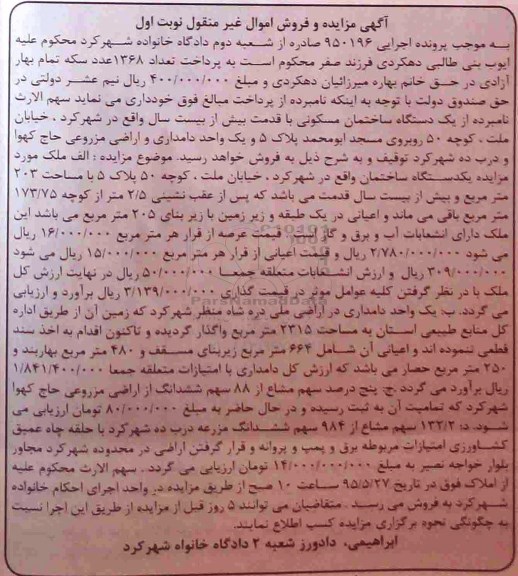 آگهی مزایده و فروش اموال غیر منقول نوبت اول
به موجب پرونده اجرایی ۹۵۰۱۹۶ صادره از شعبه دوم دادگاه خانواده شهرکرد محکوم علیه
ایوب بنی طالبی دهکردی فرزند صفر محکوم است به پرداخت تعداد ۱۳۶۸عدد سکه تمام بهار
آزادی در حق خانم بهاره میرزائیان دهکردی و مبلغ ۴۰۰/۰۰۰/۰۰۰ ریال نیم عشر دولتی در
حق صندوق دولت با توجه به اینکه نامبرده از پرداخت مبالغ فوق خودداری می نماید سهم الارث
نامبرده از یک دستگاه ساختمان مسکونی با قدمت بیش از بیست سال واقع در شهرکرد ، خیابان
ملت ، کوچه ۵۰ روبروی مسجد ابومحمد پلاک ۵ و یک واحد دامداری و اراضی مزروعی حاج کهوا
و درب ده شهرکرد توقیف و به شرح ذیل به فروش خواهد رسید. موضوع مزایده : الف ملک مورد
مزایده یکدستگاه ساختمان واقع در شهرکرد ، خیابان ملت ، کوچه ۵۰ پلاک ۵ با مساحت ۲۰۳
متر مربع و بیش از بیست سال قدمت می باشد که پس از عقب نشینی ۲/۵ متر از کوچه ۱۷۳/۷۵
متر مربع باقی می ماند و اعیانی در یک طبقه و زیر زمین با زیر بنای ۲۰۵ متر مربع می باشد این
ملک دارای انشعابات آب و برق و گاز است. قیمت عرصه از قرار هر متر مربع ۱۶/۰۰۰/۰۰۰ ریال
می شود ۲/۷۸۰/۰۰۰/۰۰۰ ریال و قیمت اعیانی از قرار هر متر مربع ۱۵/۰۰۰/۰۰۰ ریال می شود
۳۰۹/۰۰۰/۰۰۰ ریال و ارزش انشعابات متعلقه جمعا ۵۰/۰۰۰/۰۰۰ ریال در نهایت ارزش کل
ملک با در نظر گرفتن کلیه عوامل موثر در قیمت گذاری ۳/۱۳۹/۰۰۰/۰۰۰ ریال برآورد و ارزیابی
می گردد. ب: یک واحد دامداری در اراضی ملی دره شاه منظر شهرکرد که زمین آن از طریق اداره
کل منابع طبیعی استان به مساحت ۲۳۱۵ متر مربع واگذار گردیده و تاکنون اقدام به اخذ سند
قطعی ننموده اند و اعیانی آن شامل ۶۶۴ متر مربع زیربنای مسقف و ۴۸۰ متر مربع بهاربند و
۲۵۰ متر مربع حصار می باشد که ارزش کل دامداری با امتیازات متعلقه جمعا ۱/۸۴۱/۴۰۰/۰۰۰
ریال برآورد می گردد .ج: پنج درصد سهم مشاع از ۸۸ سهم ششدانگ از اراضی مزروعی حاج کهوا
شهرکرد که تمامیت آن به ثبت رسیده و در حال حاضر به مبلغ ۸۰/۰۰۰/۰۰۰ تومان ارزیابی می
شود. د: ۱۳۲/۲ سهم مشاع از ۹۸۴ سهم ششدانگ مزرعه درب ده شهرکرد با حلقه چاه عمیق
کشاورزی امتیازات مربوطه برق و پمپ و پروانه و قرار گرفتن اراضی در محدوده شهرکرد مجاور
بلوار خواجه نصیر به مبلغ ۱۴/۰۰۰/۰۰۰/۰۰۰ تومان ارزیابی می گردد . سهم الارث محکوم علیه
از املاک فوق در تاریخ ۹۵/۵/۲۷ ساعت ۱۰ صبح از طریق مزایده در واحد اجرای احکام خانواده
شهرکرد به فروش می رسید . متقاضیان می توانند ۵ روز قبل از مزایده از طریق این اجرا نسبت
به چگونگی نحوه برگزاری مزایده کسب اطلاع نمایند.
ابراهیمی، دادورز شعبه ۲ دادگاه خانواه شهرکرد